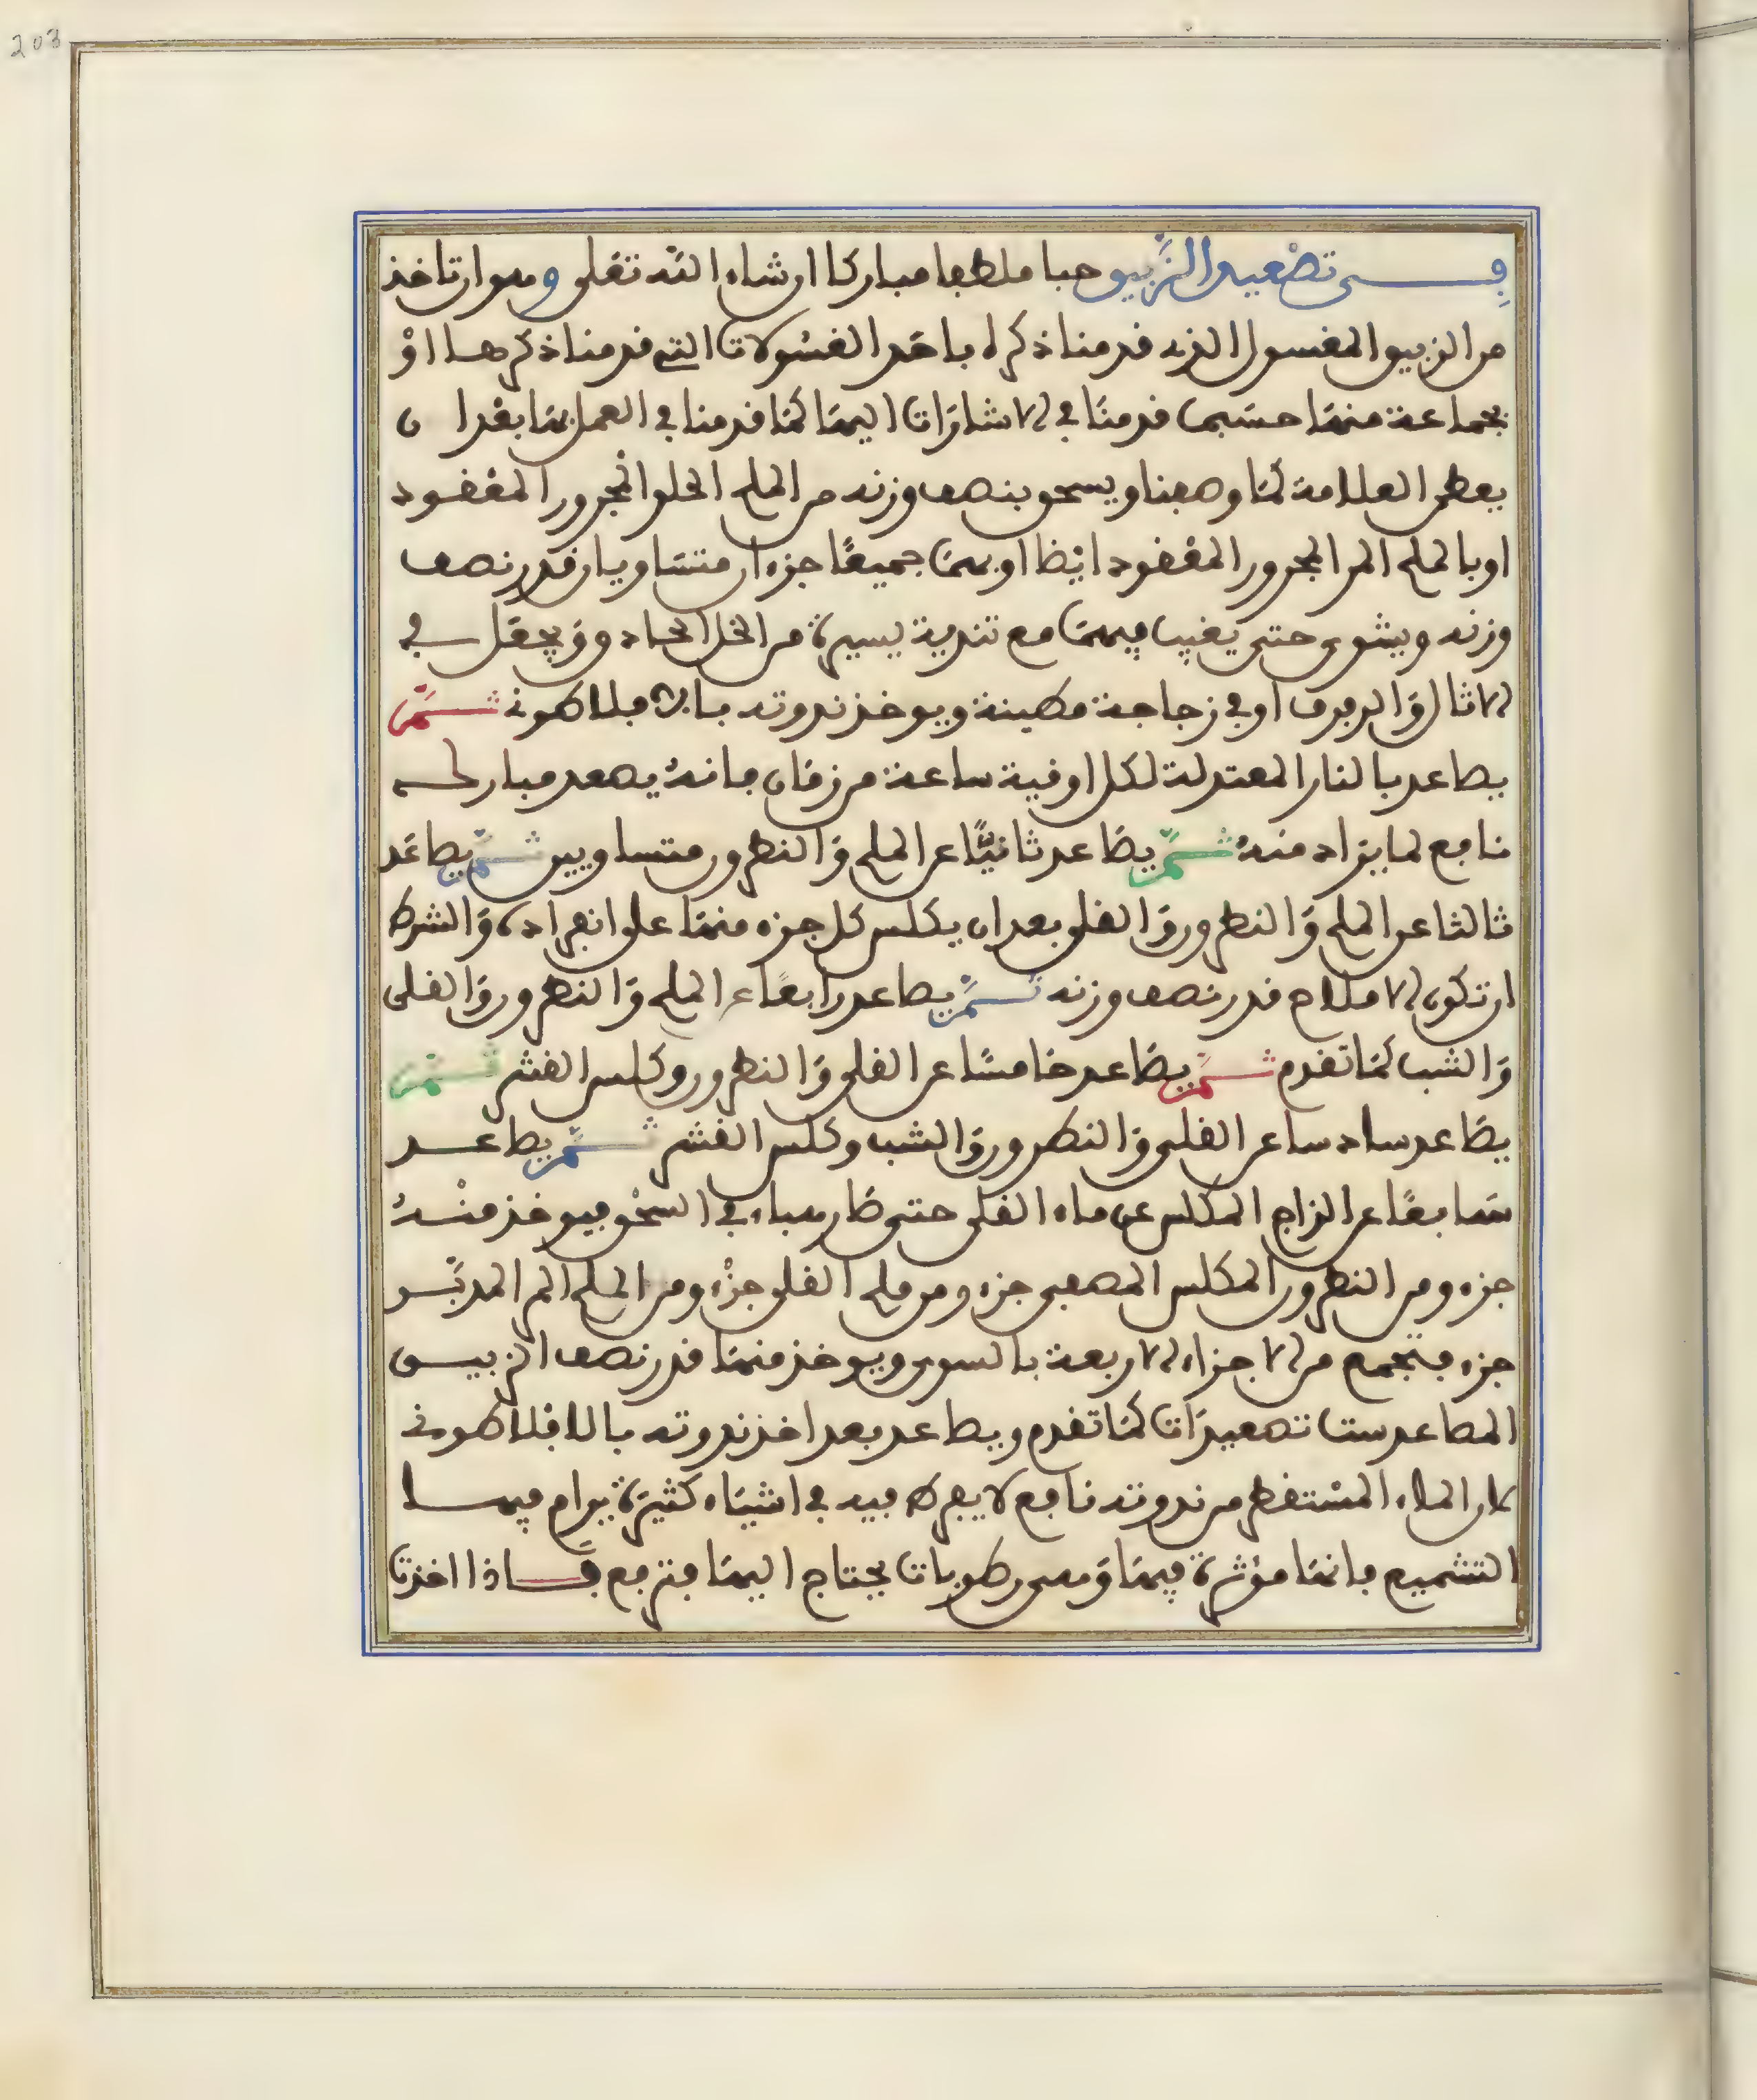 203
في تصعيد الزيبق حيا ملطفا مباركا ان شاء الله تعلى وهو ان تاخذ
من الزيبق المغسول الذي قدمنا ذكره باحد الغسولات التي قدمنا ذكرها او
بجماعة منها حسبما قدمنا في الاشارات اليها كما قدمنا في العمل بها بعد ان
يعطى العلامة كما وصفنا ويسحق بنصف وزنه من الملح الحلو المحرور المعقود
او بالملح المر المحرور المعقود ايضا او بهما جميعا جزءان متساويان قدر نصف
وزنه ويشوى حتى يغيب فيهما مع تندية يسيرة من الخل الحاد ويجعل في
الاثال او في زجاجة مطينة ويوخذ ندوته بالافلاطوني ثم
يصاعد بالنار المعتدلة لكل اوقية ساعة من زمان فانه يصعد مبارك
نافع لما يراد منه ثم يصاعد ثانيا عن الملح والنطرون متساويين ثم يصاعد
ثالثا عن الملح والنطرون والقلي بعد ان يكلس كل جزء منها على انفراده والشرط
ان تكون الاملاح قدر نصف وزنه ثم يصاعد رابعا عن الملح والنطرون والقلى
والشب كما تقدم ثم يصاعد خامسا عن القلى والنطرون وكلس القشر ثم
يصاعد سادسا عن القلى والنطرون والشب وكلس القشر ثم يصاعد
سابعا عن الزاج المكلس عن ماء القلى حتى صار هباء في السحق فيوخذ منه
جزء ومن النطرون المكلس المصفى جزء ومن ملح القلى جزء ومن الملح المر المدبر
جزء فتجمع من الاجزاء الاربعة بالسوى ويوخذ منها قدر نصف الزيبق
المصاعد ست تصعيدات كما تقدم ويصاعد بعد اخذ ندوته بالافلاطوني
لان الماء المستقطر من ندوته نافع لا يفرط فيه في اشياء كثيرة يرام فيها
التشميع فانها مؤثرة فيها وهى رطوبات يحتاج اليها فترفع فاذا اخذت